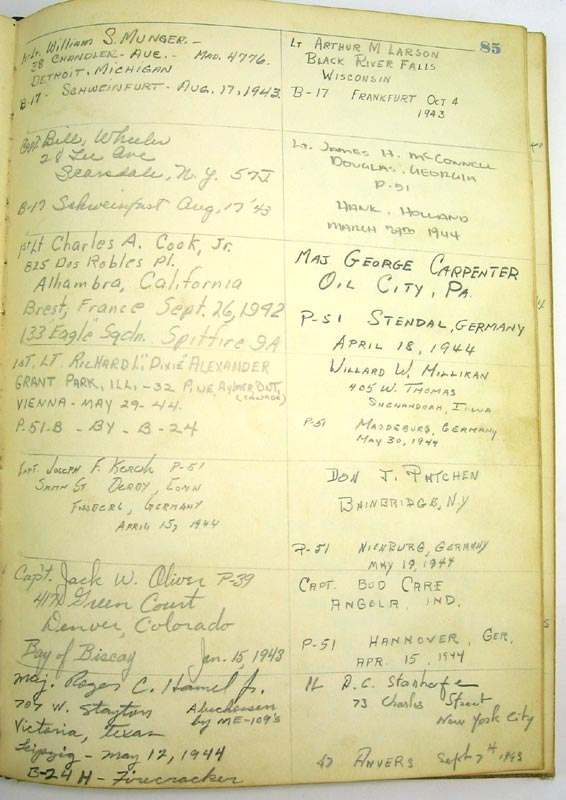 85
Lt. William S. Munger -
38 Chandler - Ave. - Mad. 4776.
Detroit, Michigan
B-17 - Schweinfurt - Aug. 17, 1943
Capt Bill Wheeler
28 Lee Ave
Scarsdale, N.Y.
B-17 Schweinfurt Aug, 17 '43
1st Lt Charles A. Cook, Jr.
825 Dos Robles Pl.
Alhambra, California
Brest, France Sept. 26, 1942
133 "Eagle" Sqdn. Spitfire 9A
1st. Lt. Richard L. "Dixie" Alexander
Grant Park, Ill. - 32 Pine
Vienna - May 29 - 44.
P-51-B - By - B-24
Capt. Joseph F. P-51
Smith St Derby, Conn
Germany
April 15, 1944
Capt. Jack W. Oliver P-39
Green Court
Denver, Colorado
Bay of Biscay Jan. 15, 1943
Maj. Roger C. Hamel Jr.
707 W. Stayton
by ME-109's
Victoria, Texas
Leipzig - May 12, 1944
B-24 H - Firecracker
Lt Arthur M Larson
Black River Falls
Wisconsin
B-17 Frankfurt Oct 4
1943
Lt. James H. McConnell
Douglas, Georgia
P-51
Holland
March 1944
Maj George Carpenter
Oil City, Pa.
P-51 Stendal, Germany
April 18, 1944
Willard W. Millikan
405 W. Thomas
Shenandoah, Iowa
P-51 Magdeburg, Germany
May 30, 1944
Don J. Patchen
Bainbridge, N.Y
P-51 Nienburg, Germany
May 19, 1944
Capt. Bud Care
Angola, Ind.
P-51 Hannover, Ger.
Apr. 15, 1944
D.C.
73 Charles Street
New York City
Anvers Sept 1943